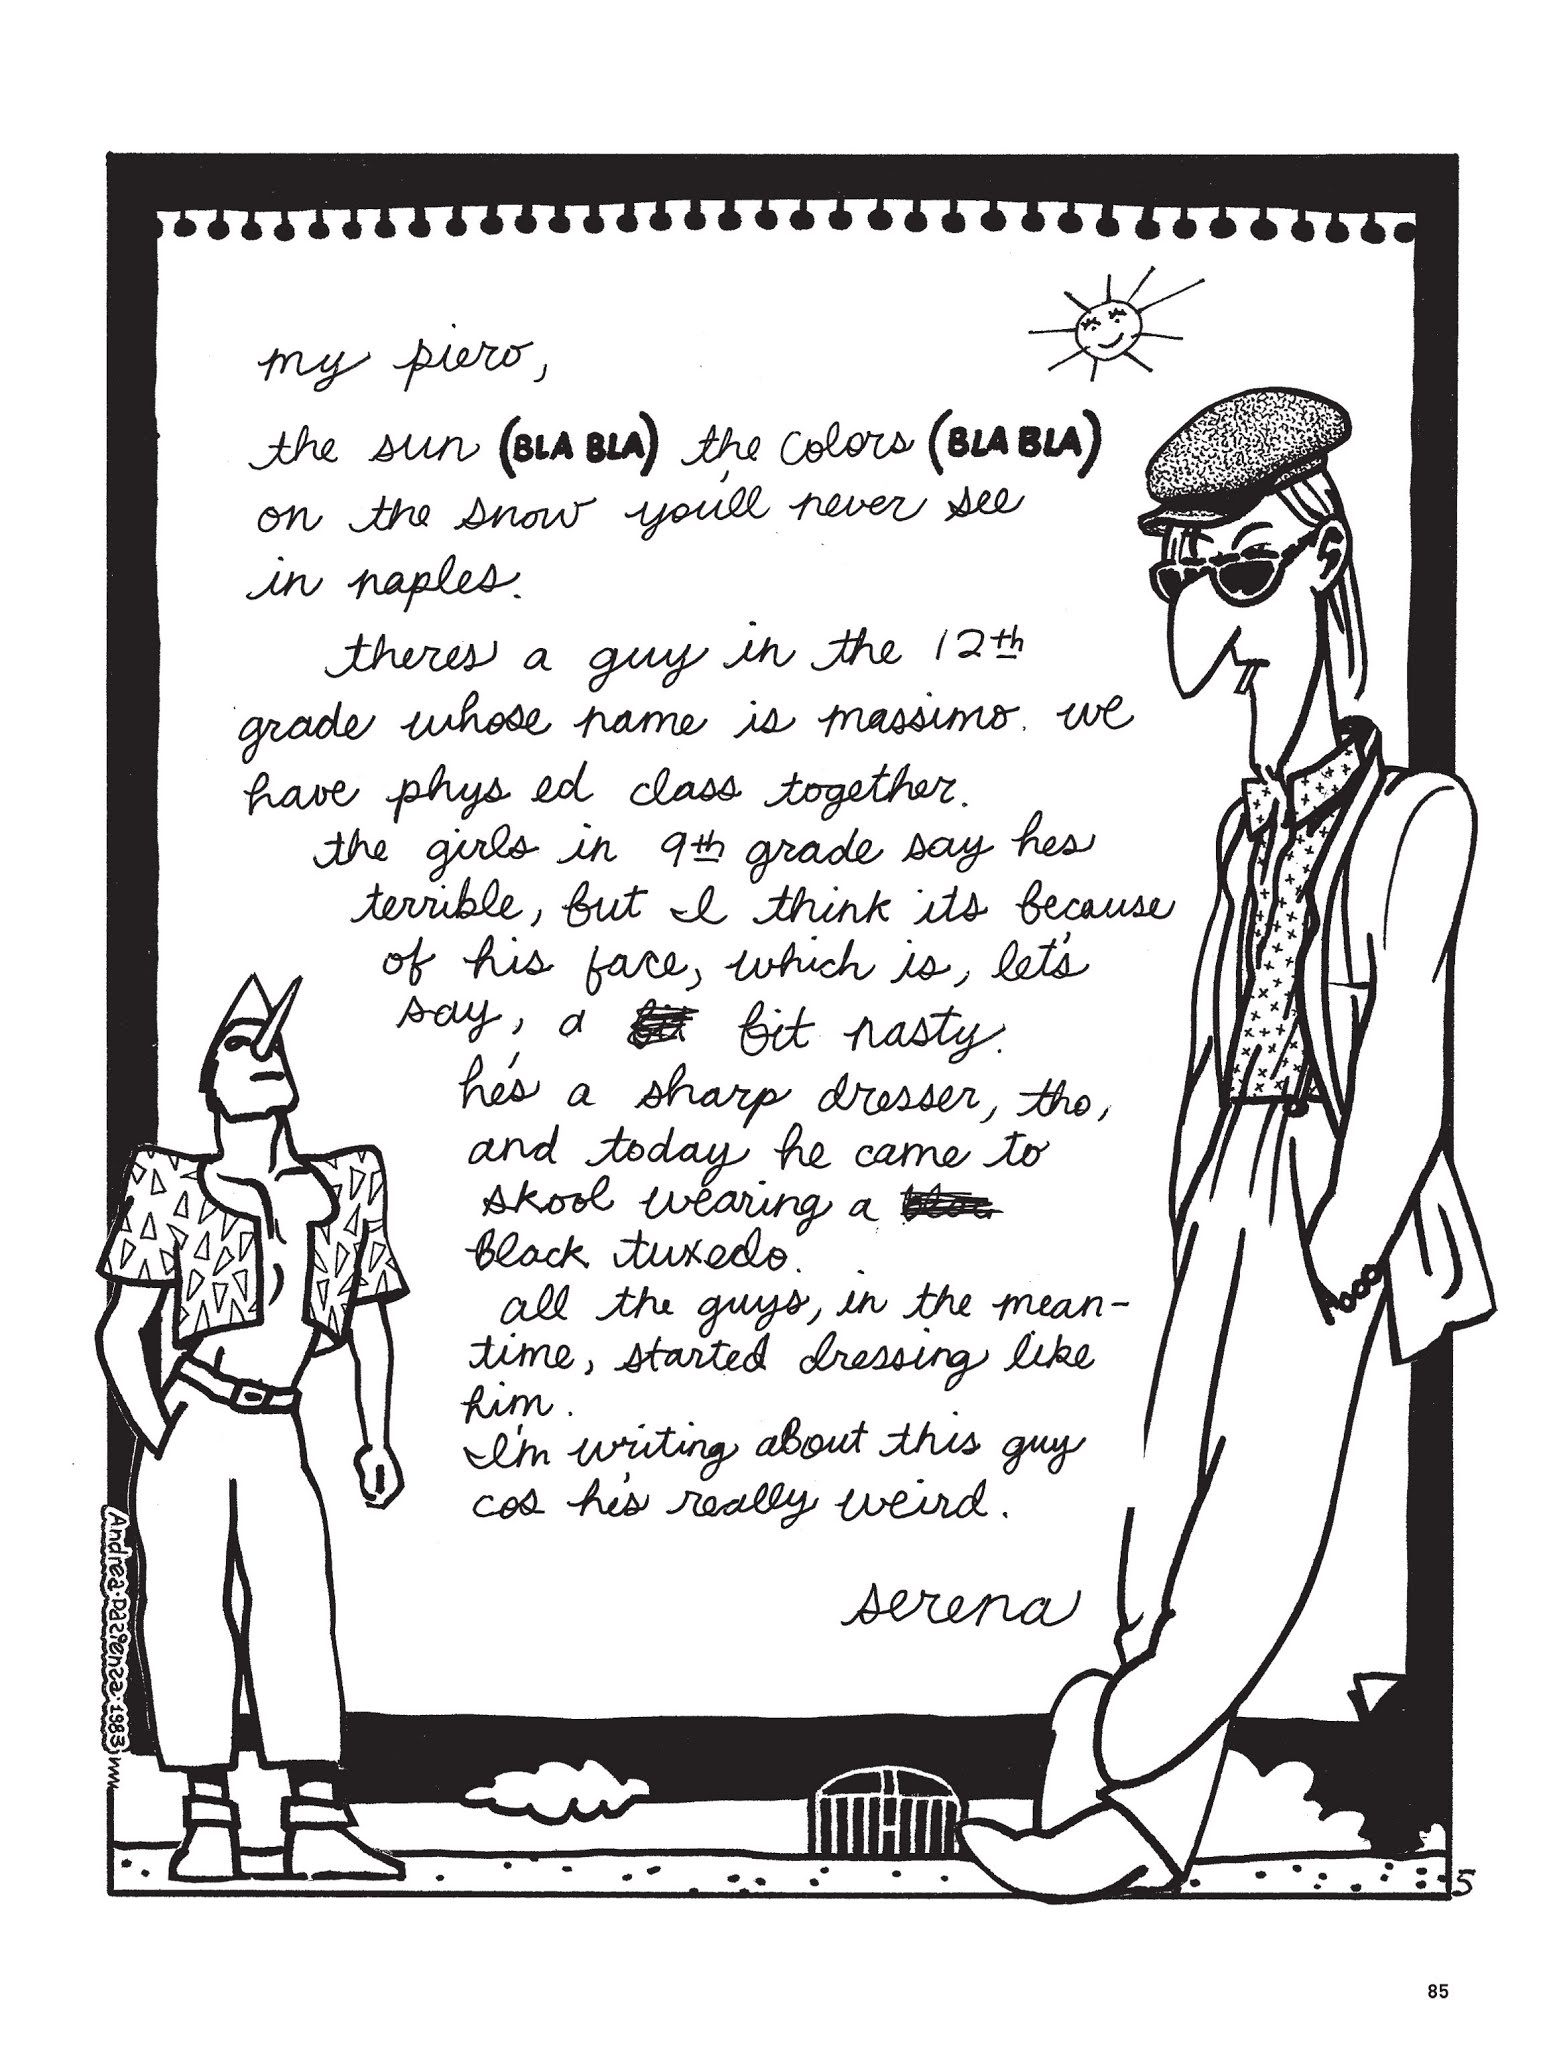 my piero,
the sun (BLA BLA) the colors (BLA BLA)
on the snow you'll never see
in naples.
theres a guy in the 12th
grade whose name is massimo. we
have phys ed class together.
the girls in 9th grade say hes
terrible, but I think its because
of his face, which is, let's
say, a bit bit nasty.
he's a sharp dresser, tho,
and today he came to
skool wearing a
black tuxedo.
all the guys, in the mean-
time, started dressing like
him.
I'm writing about this guy
cos he's really weird.
serena
Andrea·pazienza·1983
5
85